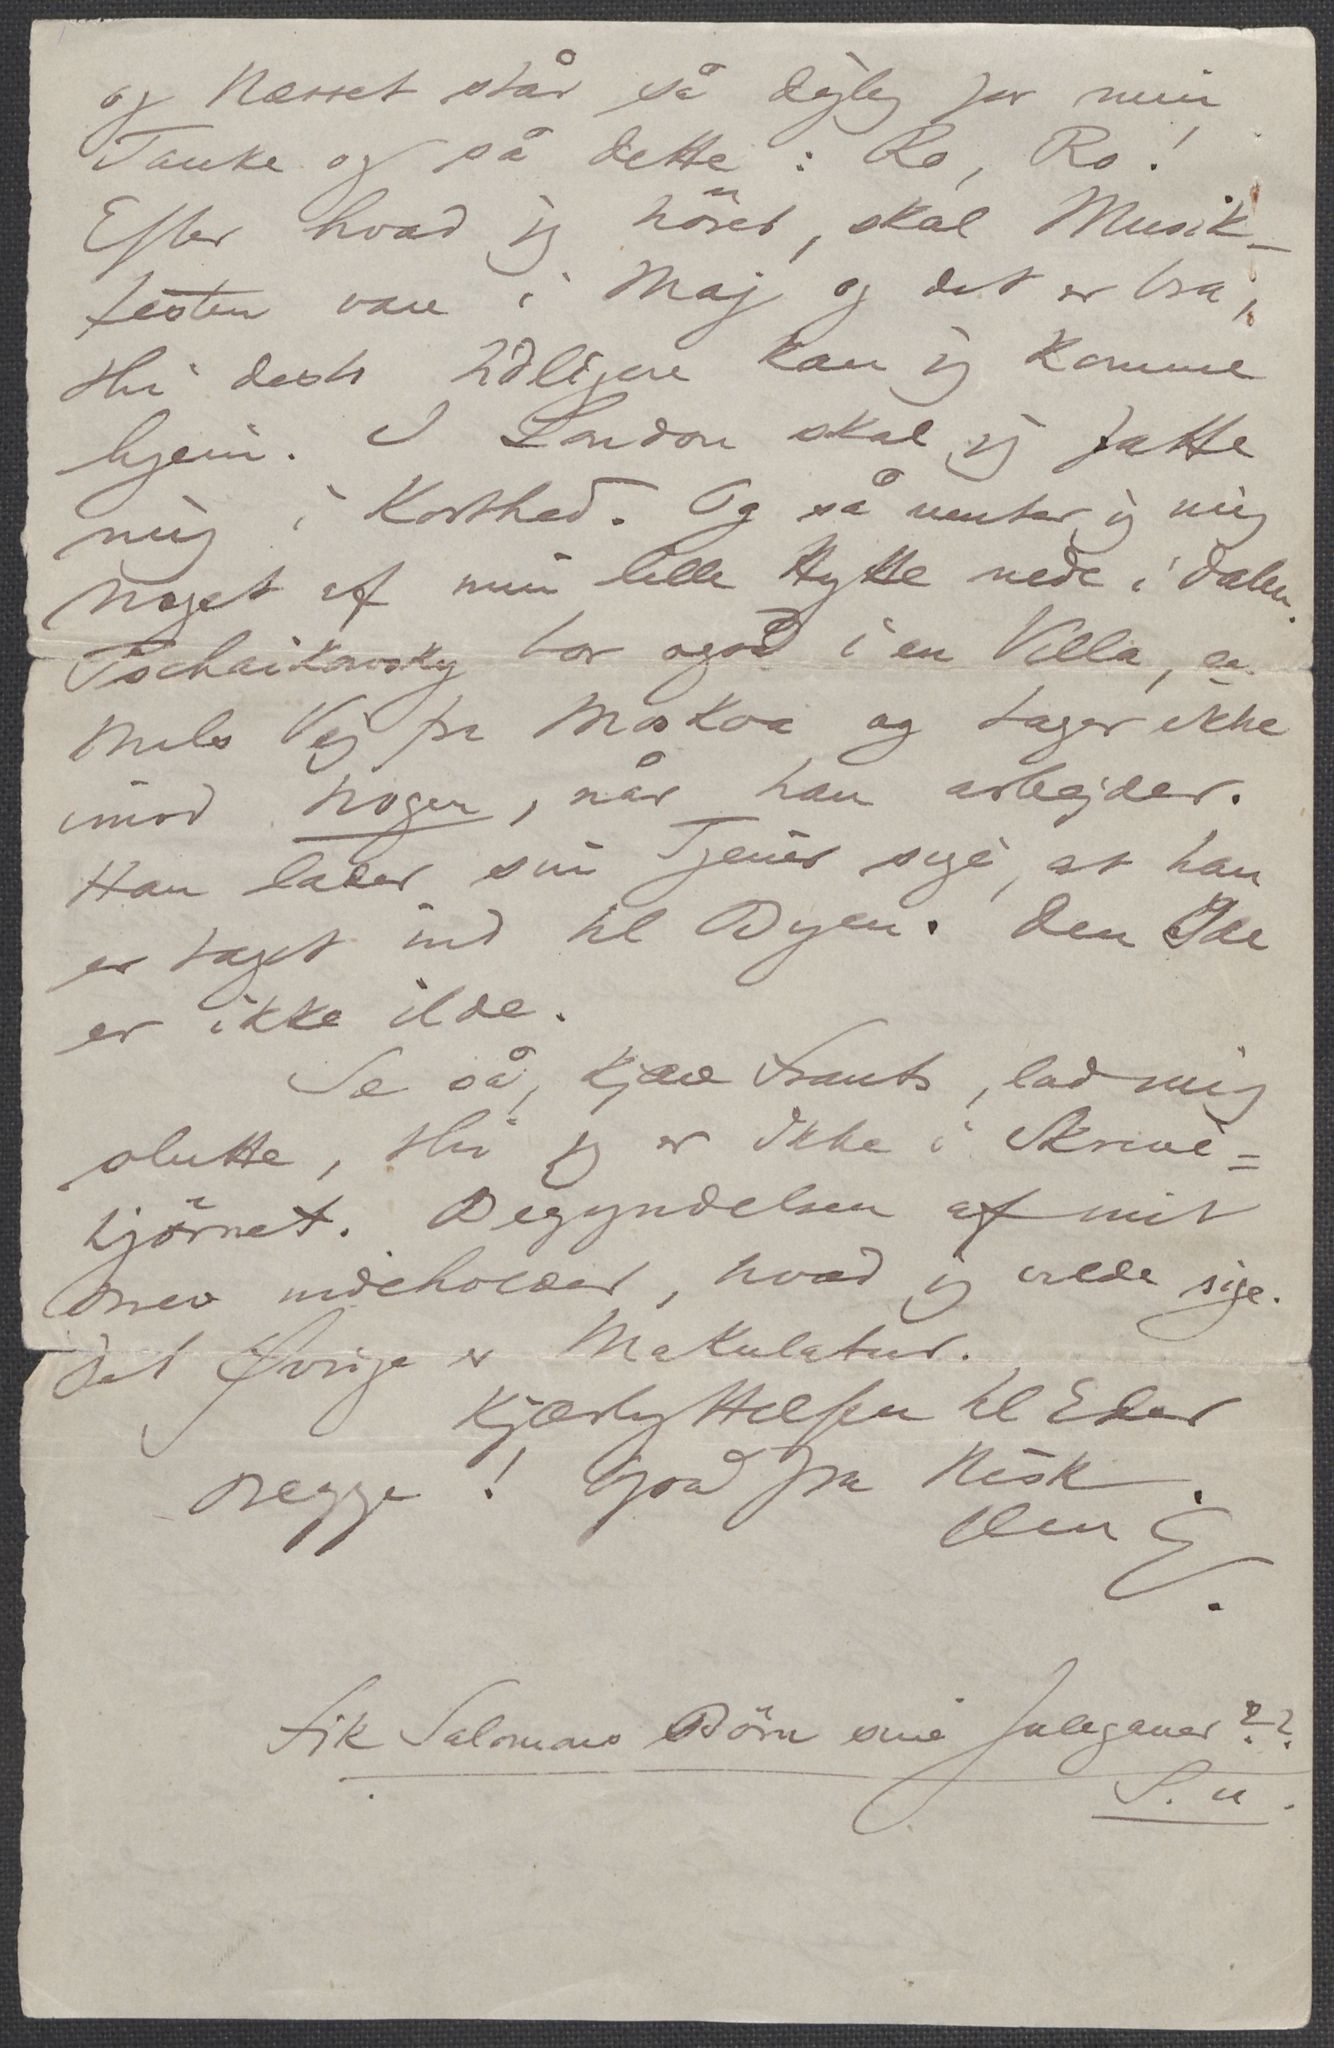 og Næsset står så dejlig for min
Tanke og så dette: Ro, Ro!
Efter hvad jeg hører, skal Musik-
festen være i Maj og det er bra,
thi desto tidligere kan jeg komme
hjem. I London skal jeg fatte
mig i Korthed. Og så venter jeg mig
noget af min lille Hytte nede i Dalen.
Tschaikowsky bor også i en Villa, en
Mils Vej fra Moskva og tager ikke
imod nogen, når han arbejder.
Han lader sin Tjener sige, at han
er taget ind til Byen. Den Ide
er ikke ilde.
Se så, kjære Frants, lad mig
slutte, thi jeg er ikke i Skrive=
hjørnet. Begyndelsen af mit
Brev indeholder, hvad jeg vilde sige.
Det Øvrige er Makulatur.
Kjærlig Hilsen til Eder
Begge! god fra Nisk.
Din E.
Fik Salomons Börn sine Julegaver??
S. u.